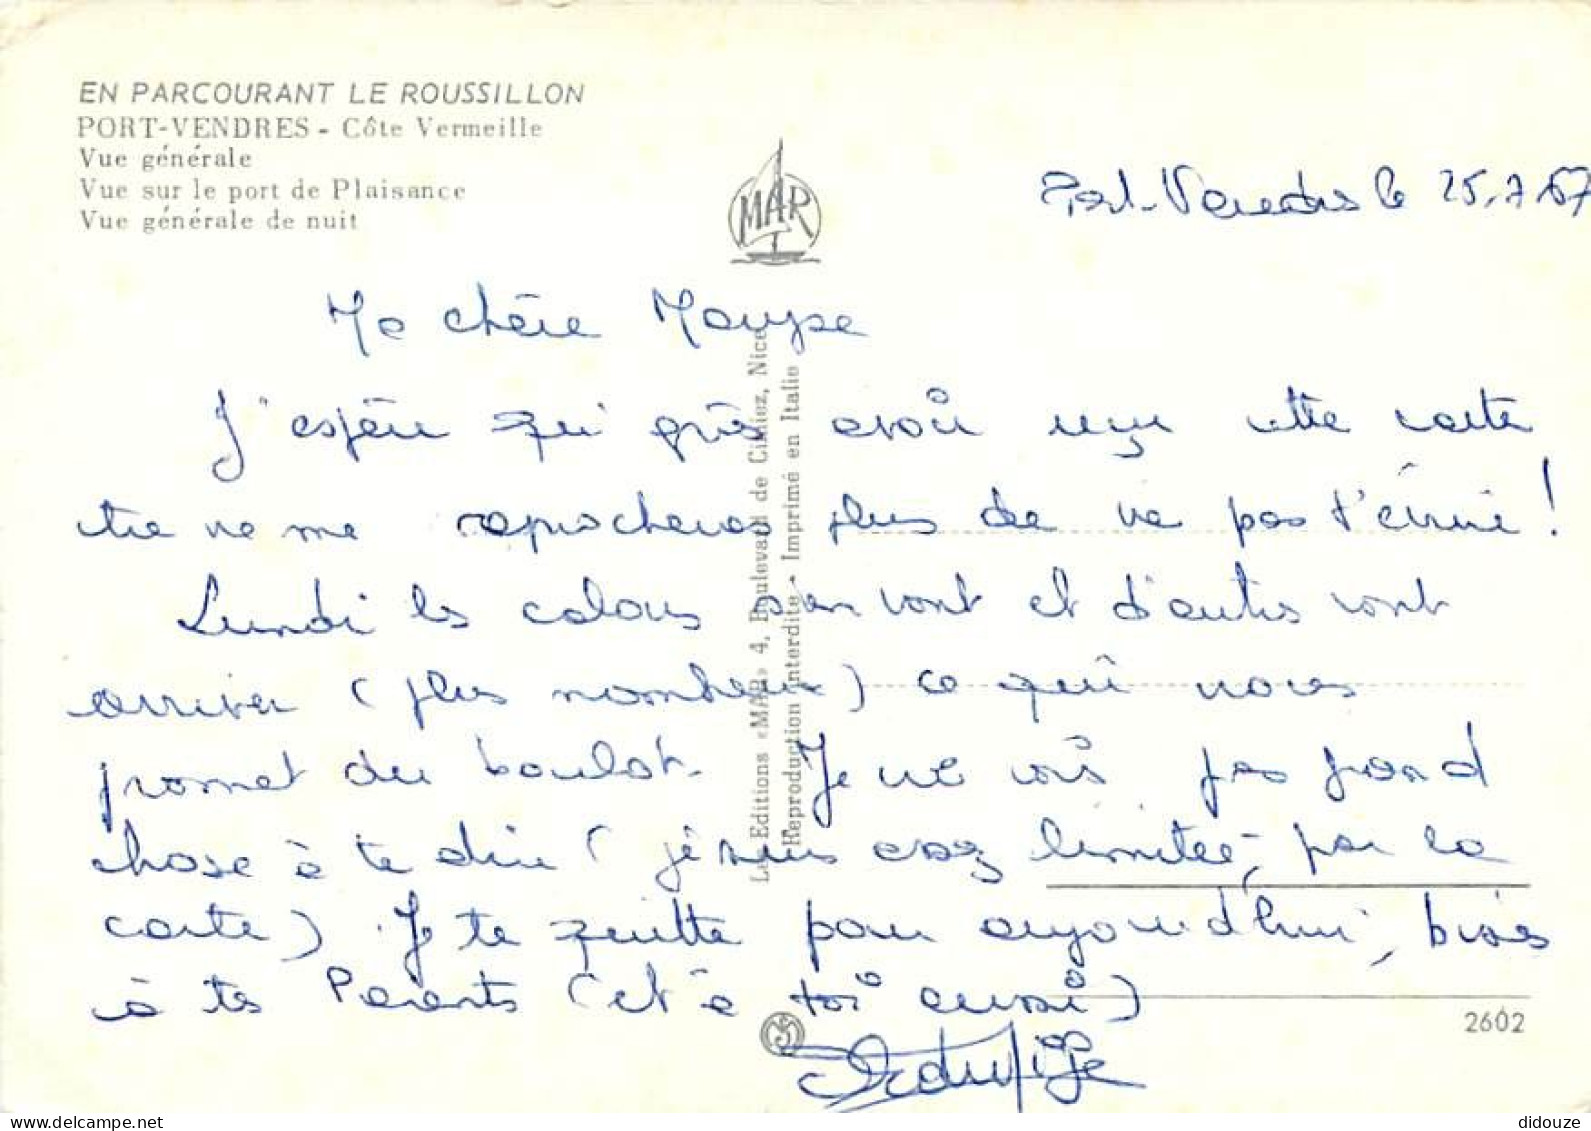 EN PARCOURANT LE ROUSSILLON
PORT-VENDRES - Côte Vermeille
Vue générale
Vue sur le port de Plaisance
Vue générale de nuit
MAR
Port-Vendres le 25.7.67
Ma chère
J'espère qu' avoir reçu cette carte
tu ne me raprocheras plus de ne pas t'écrire !
Lundi les colons s'en vont et d'autres vont
arriver (plus nombreux) ce qui nous
promet du boulot. Je ne vois pas grand
chose à te dire (je suis assez limitée, par la
carte). Je te quitte pour aujourd'hui, bises
à tes Parents (et à toi aussi)
Les Editions «MAR» 4, Boulevard de Cimiez, Nice
Reproduction interdite - Imprimé en Italie
2602
didouze